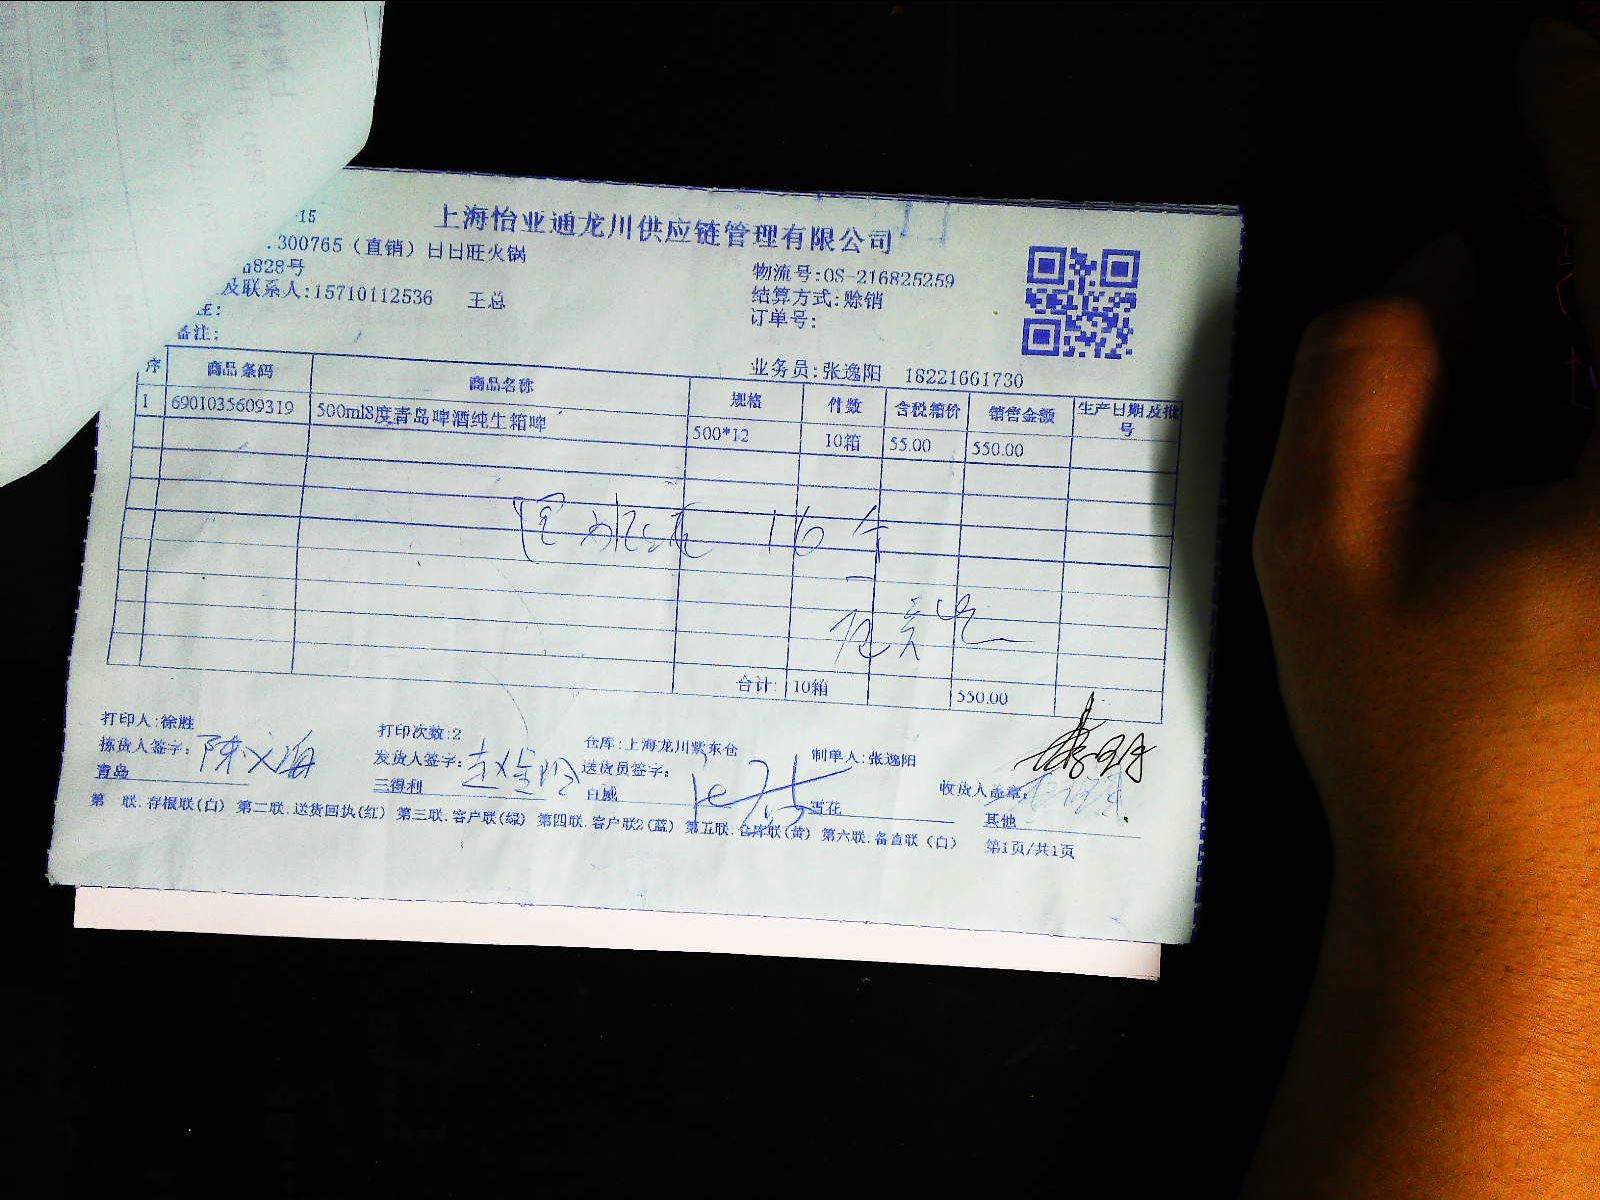 上海怡亚通龙川供应链管理有限公司
-15
.300765（直销）日日旺火锅
828号
及联系人:15710112536 王总
注:
备注:
物流号:OS-216825259
结算方式:赊销
订单号:
业务员:张逸阳 18221661730
序 商品条码 商品名称 规格 件数 含税箱价 销售金额 生产日期及批号
1 6901035609319 500ml8度青岛啤酒纯生箱啤 500*12 10箱 55.00 550.00
16
合计: 10箱 550.00
打印人:徐胜 打印次数:2 仓库:上海龙川紫东仓 制单人:张逸阳
拣货人签字: 发货人签字: 送货员签字: 收货人盖章:
青岛 三得利 百威 雪花 其他
第 联.存根联(白) 第二联.送货回执(红) 第三联.客户联(绿) 第四联.客户联2(蓝) 第五联.仓库联(黄) 第六联.备查联（白） 第1页/共1页